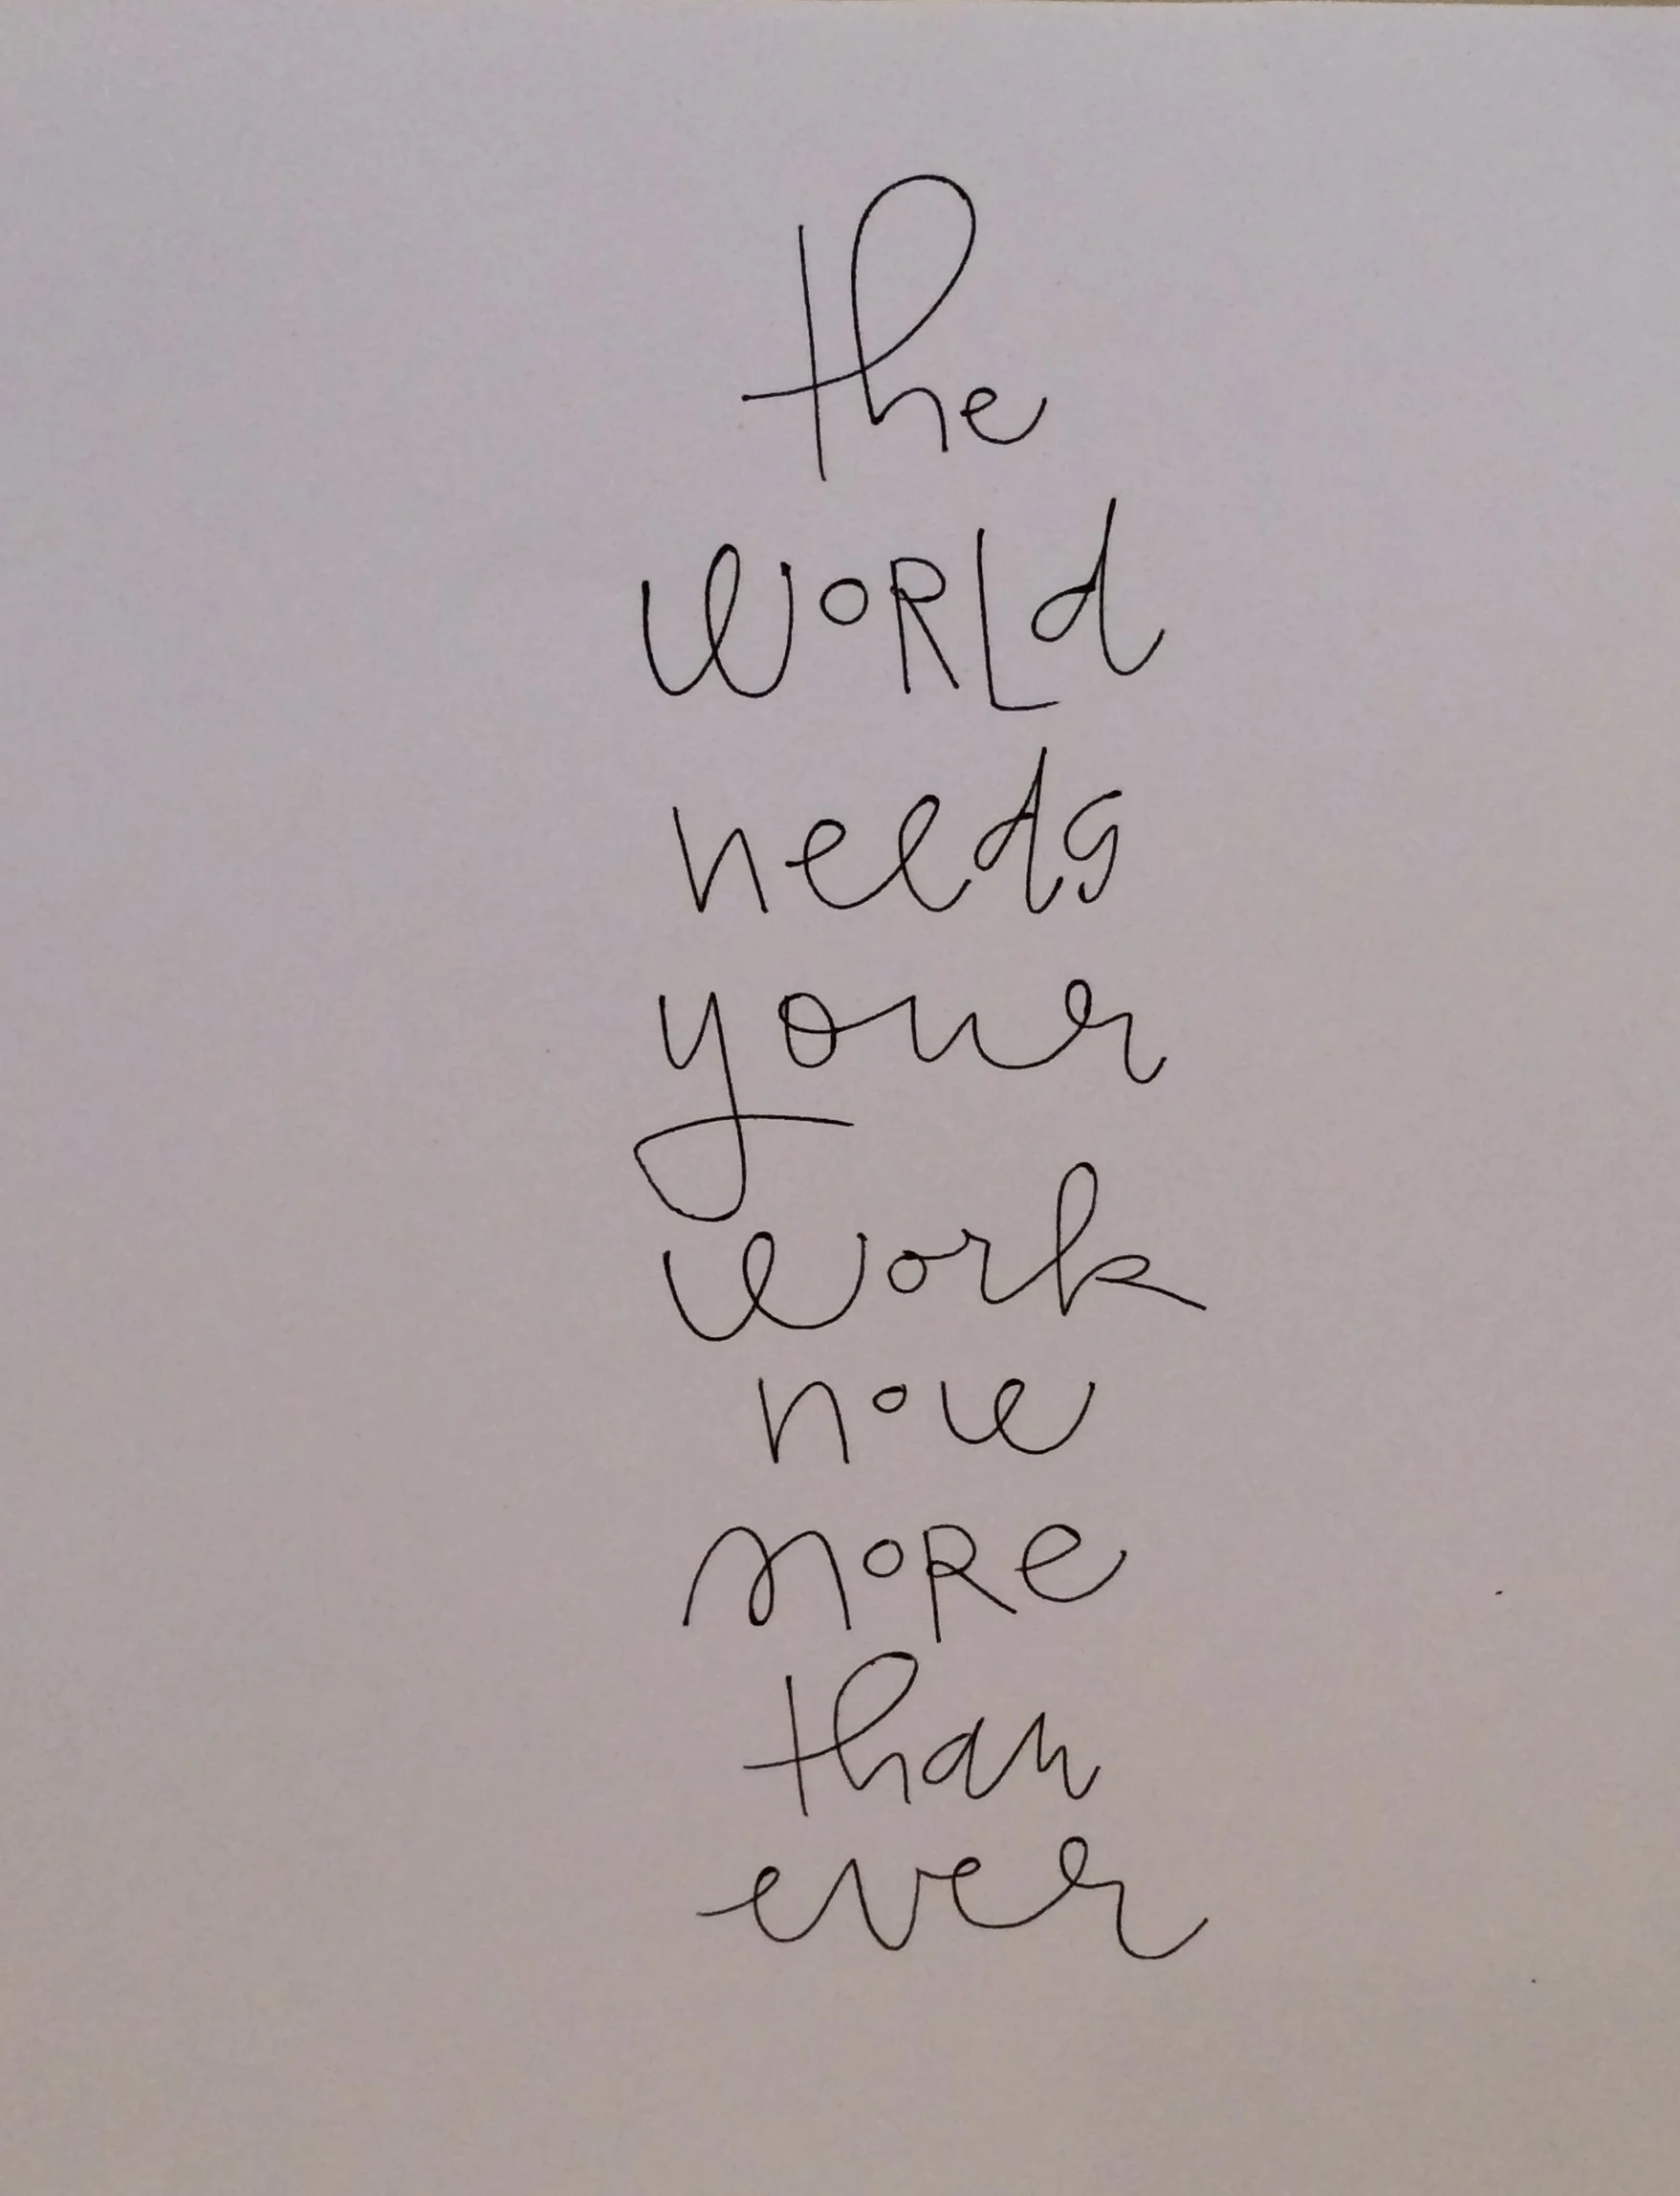 the
WORLd
needs
your
work
now
moRe
than
ever